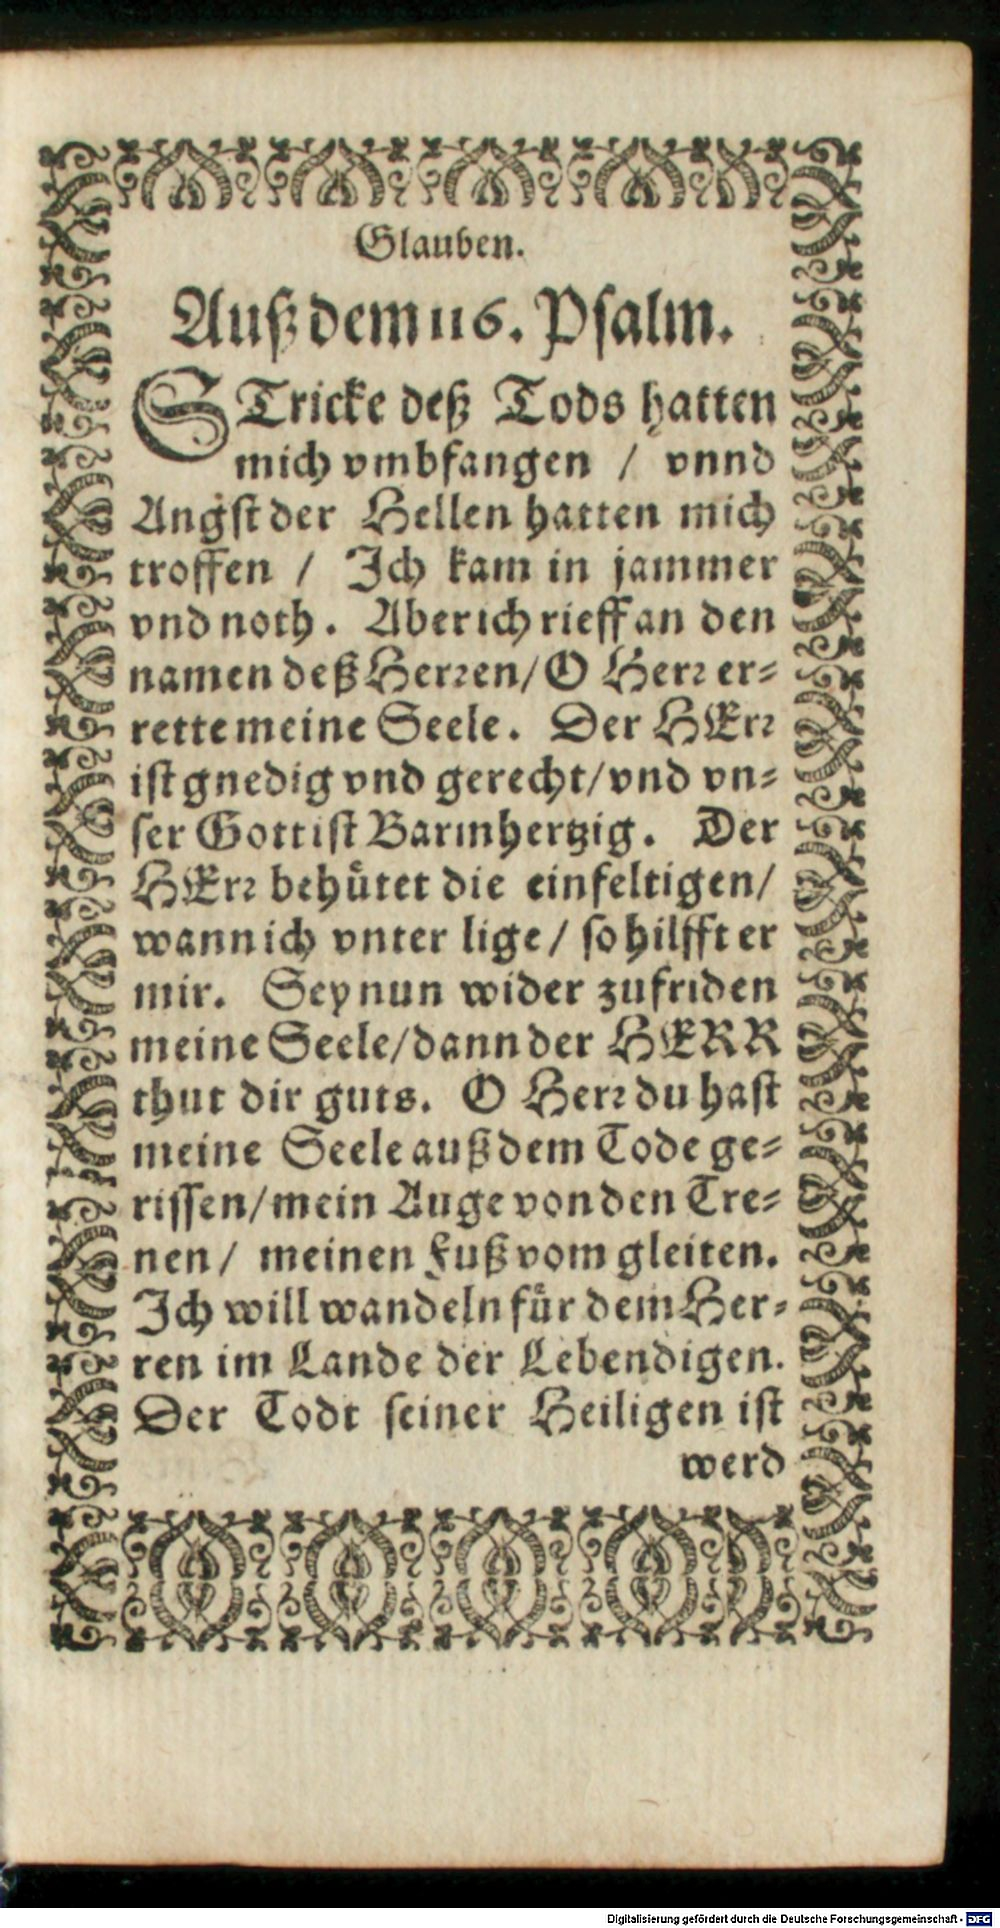 Glauben.
Auß dem 116. Psalm.
STricke deß Tods hatten
mich vmbfangen / vnnd
Angst der Hellen hatten mich
troffen / Ich kam in jammer
vnd noth. Aber ich rieff an den
namen deß Herren/ O Herr er-
rette meine Seele. Der HErr
ist gnedig vnd gerecht/ vnd vn-
ser Gott ist Barmhertzig. Der
HErr behütet die einfeltigen/
wann ich vnter lige / so hilfft er
mir. Sey nun wider zufriden
meine Seele/ dann der HERR
thut dir guts. O Herr du hast
meine Seele auß dem Tode ge-
rissen/ mein Auge von den Tre-
nen / meinen Fuß vom gleiten.
Ich will wandeln für dem Her-
ren im Lande der Lebendigen.
Der Todt seiner Heiligen ist
werd
Digitalisierung gefördert durch die Deutsche Forschungsgemeinschaft - DFG